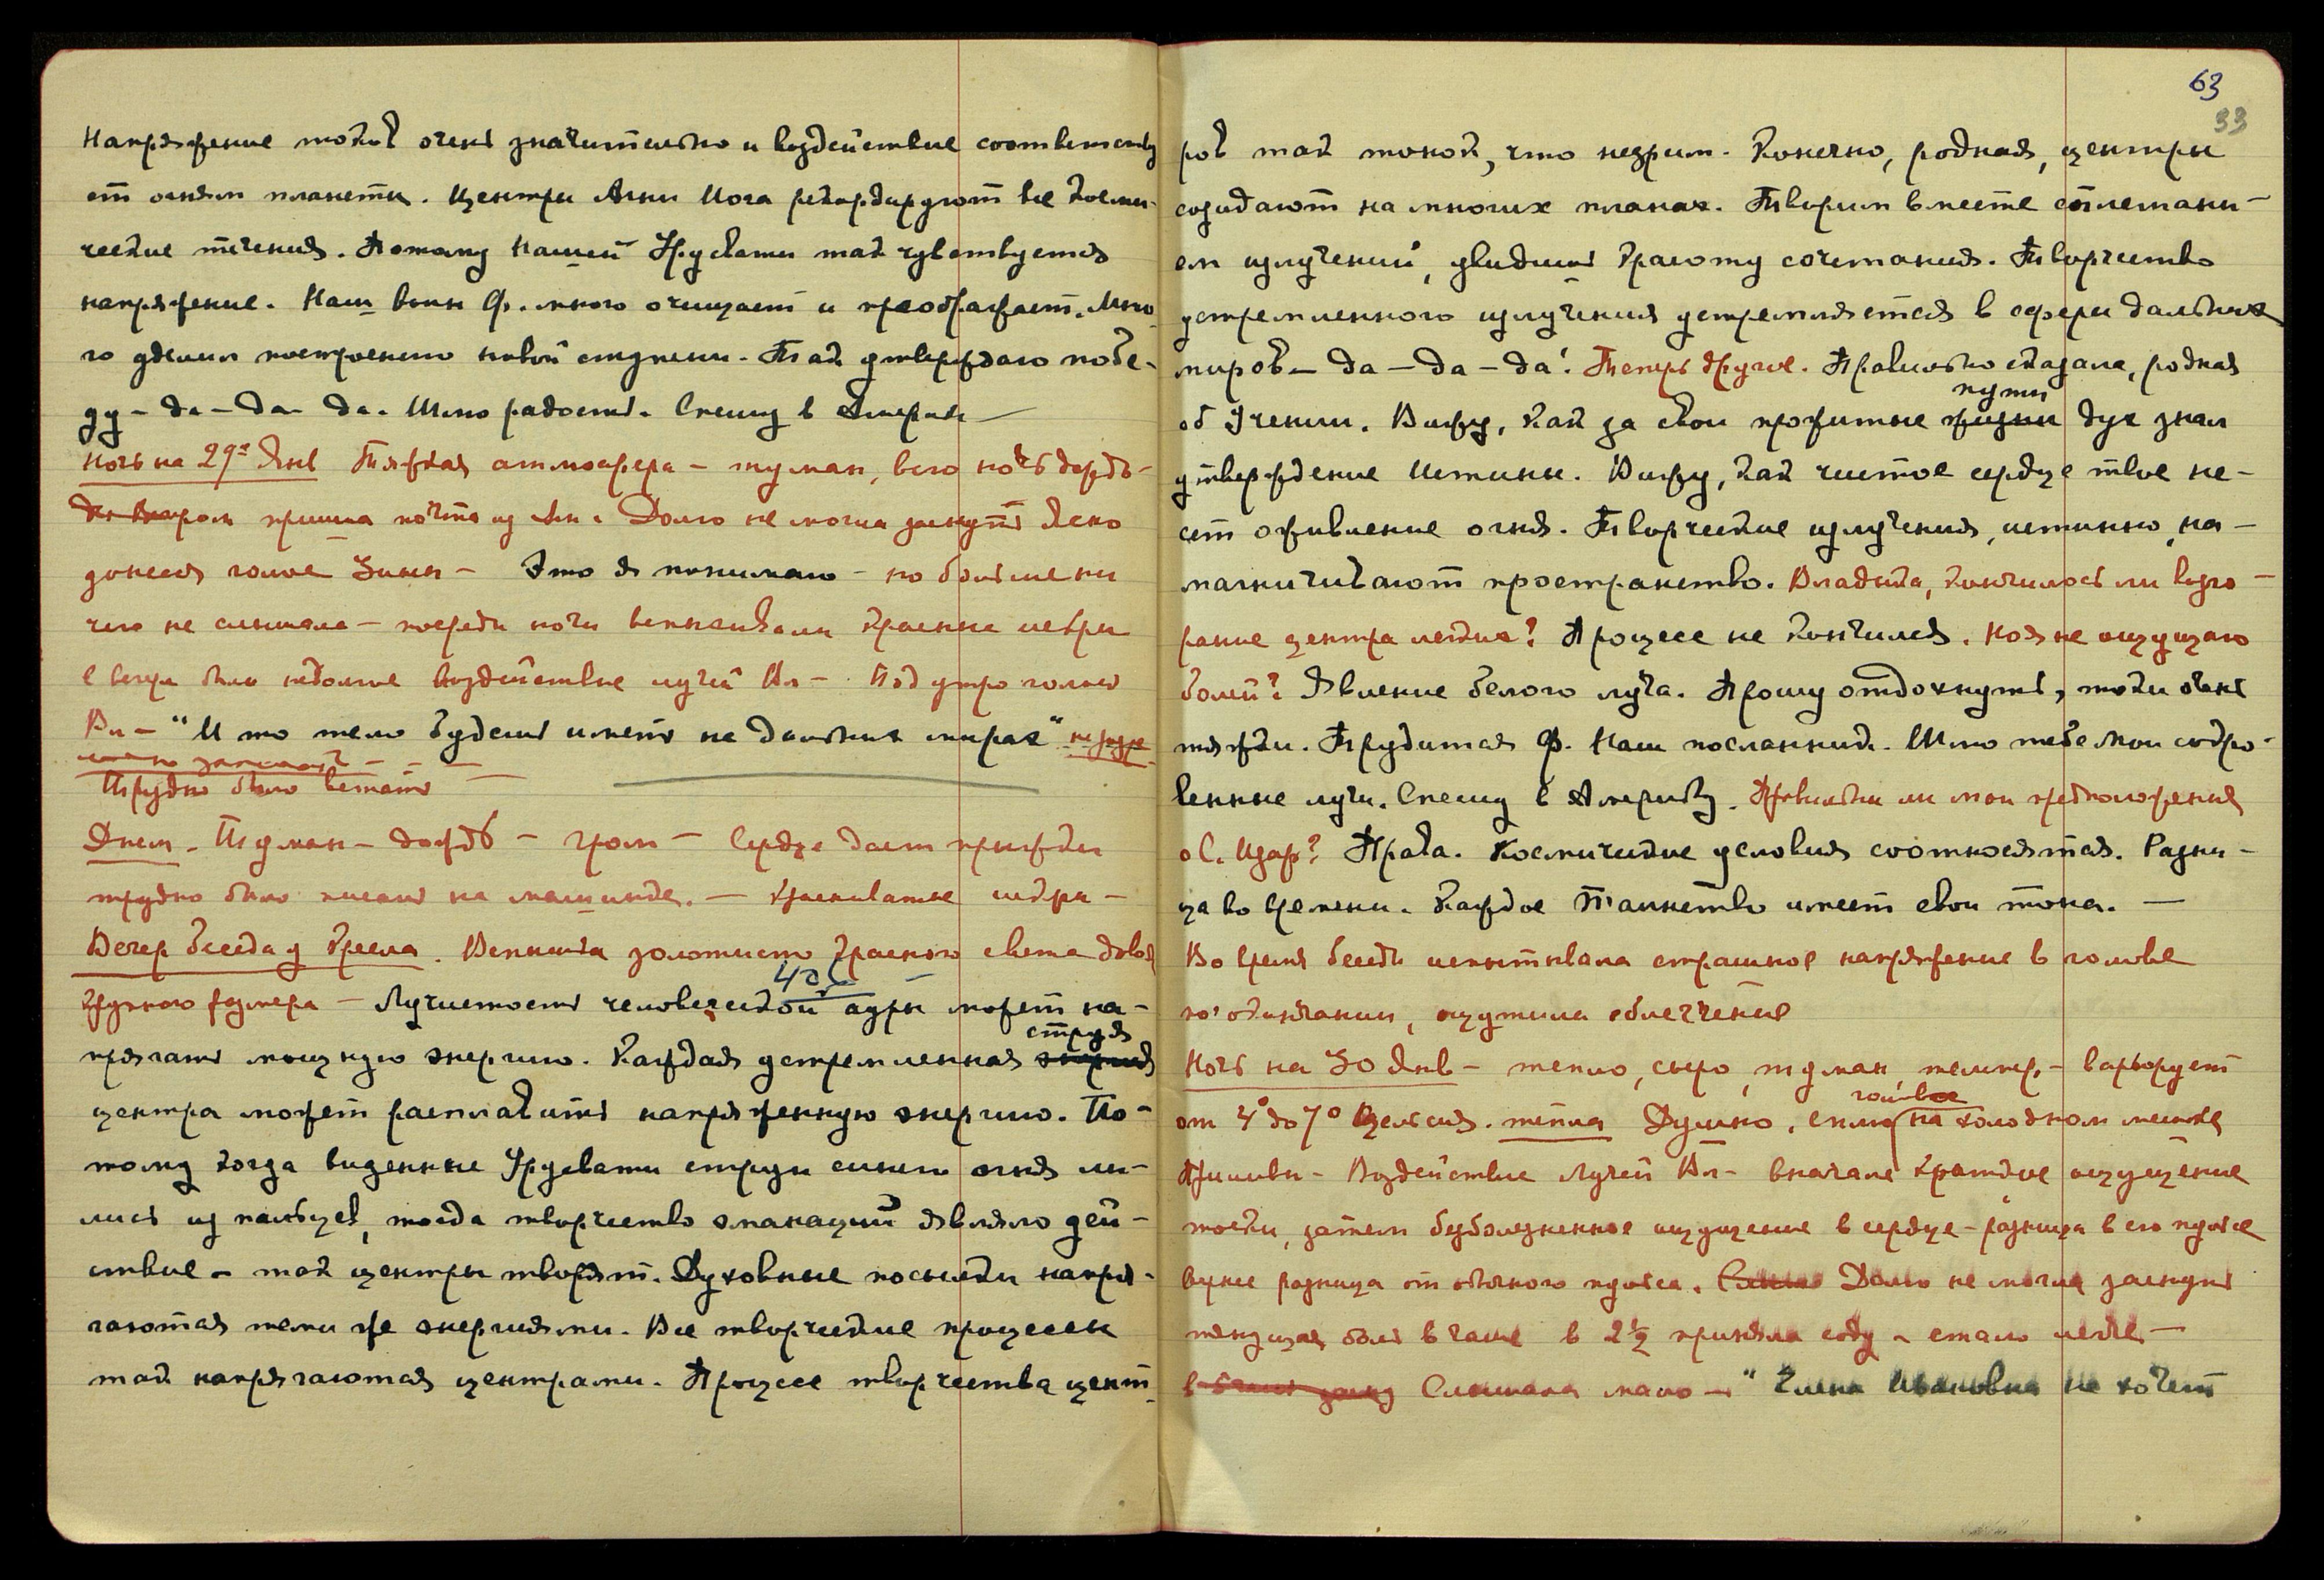 Напряжение токов очень значительно и воздействие соответству
ет огням планеты. Центры Агни Йога рекордируют все косми-
ческие течения. Потому Нашей Урусвати так чувствуется
напряжение. Наш воин Ф. много очищает и преображает. Мно-
го уделим построению новой ступени. Так утверждаю побе-
ду – да – да – да. Шлю радость. Спешу в Америк
Ночь на 29е Янв Тяжкая атмосфера – туман, всю ночь дождь –
пришла почта из Ам. Долго не могла заснуть Ясно
донесся голос Зины – Это я понимаю – но больше ни
чего не слышала – посреди ночи вспыхивали красные искры
с вечера было недолгое воздействие лучей Вл – Под утро голос
Вл – "И то тело будешь иметь на дальних мирах"
Трудно было встать
Днем. Туман – дождь – гром – Сердце дает прыжки
трудно было писать на машинке. – красноватые искры –
Вечер беседа у кресла. Вспышка золотисто красного света довол
крупного размера – Лучистость человеческой ауры может на-
прягать мощную энергию. Каждая устремленная струя
центра может расплавить напряженную энергию. По-
тому когда виденные Урусвати струи синего огня ли-
лись из пальцев, тогда творчество эманаций являло дей-
ствие – так центры творят. Духовные посылки напря-
гаются теми же энергиями. Все творческие процессы
так напрягаются центрами. Процесс творчества цент
63
33
ров так тонок, что незрим. Конечно, родная, центры
созидают на многих планах. Творим вместе сочетани-
ем излучений, увидишь красоту сочетания. Творчество
устремленного излучения устремляется в сферы дальних
миров – да – да – да! Теперь другое. Правильно сказала, родная
пути
об Учении. Вижу, как за свои прожитые жизни дух знал
утверждение Истины. Вижу, как чистое сердце твое не-
сет оживление огня. Творческие излучения, истинно, на-
магничивают пространство. Владыка, кончилось ли возго-
рание центра легких? Процесс не кончился. Но я не ощущаю
болей? Явление белого луча. Прошу отдохнуть, токи очень
тяжки. Трудится Ф. Наш посланник. Шлю тебе мои сокро-
венные лучи. Спешу в Америку. Правильны ли мои предположения
о С. Изар? Права. Космические условия соотносятся. Разни-
ца во времени. Каждое Таинство имеет свои тона. –
Во время беседы испытывала страшное напряжение в голове
по окончании, ощутила облегчение
Ночь на 30 Янв – тепло, сыро, туман, темпер. – варьирует
от 4° до 7° Цельсия. тепла Душно, сплю на холодном мешке
головой
Приливы – Воздействие Лучей Вл – вначале краткое ощущение
тоски, затем безболезненное ощущение в сердце – разница в его пульсе
вернее разница от обычного пульса. Долго не могла заснуть
тянущая боль в чаше в 2½ приняла соду – стало легче –
Слышала мало – "Елена Ивановна не хочет